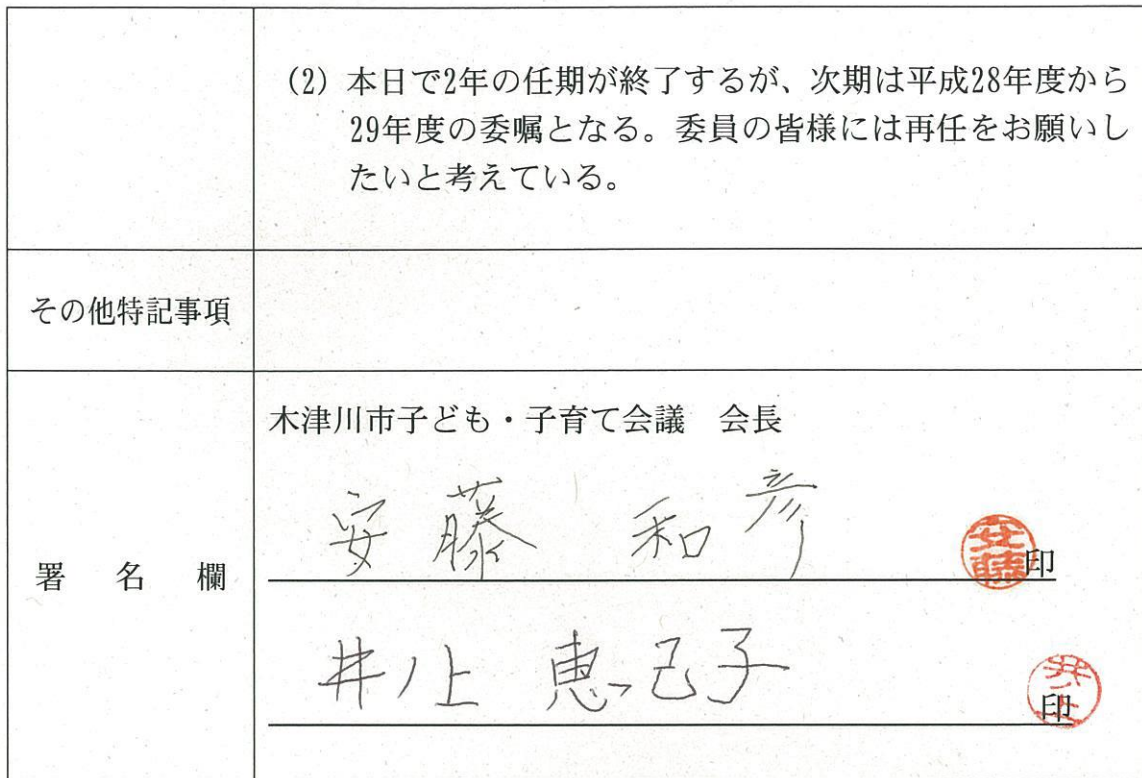 (2) 本日で2年の任期が終了するが、次期は平成28年度から
29年度の委嘱となる。委員の皆様には再任をお願いし
たいと考えている。
その他特記事項
木津川市子ども・子育て会議　会長
署名欄
安藤 和彦
安藤
印
井ノ上 恵己子
井ノ上
印